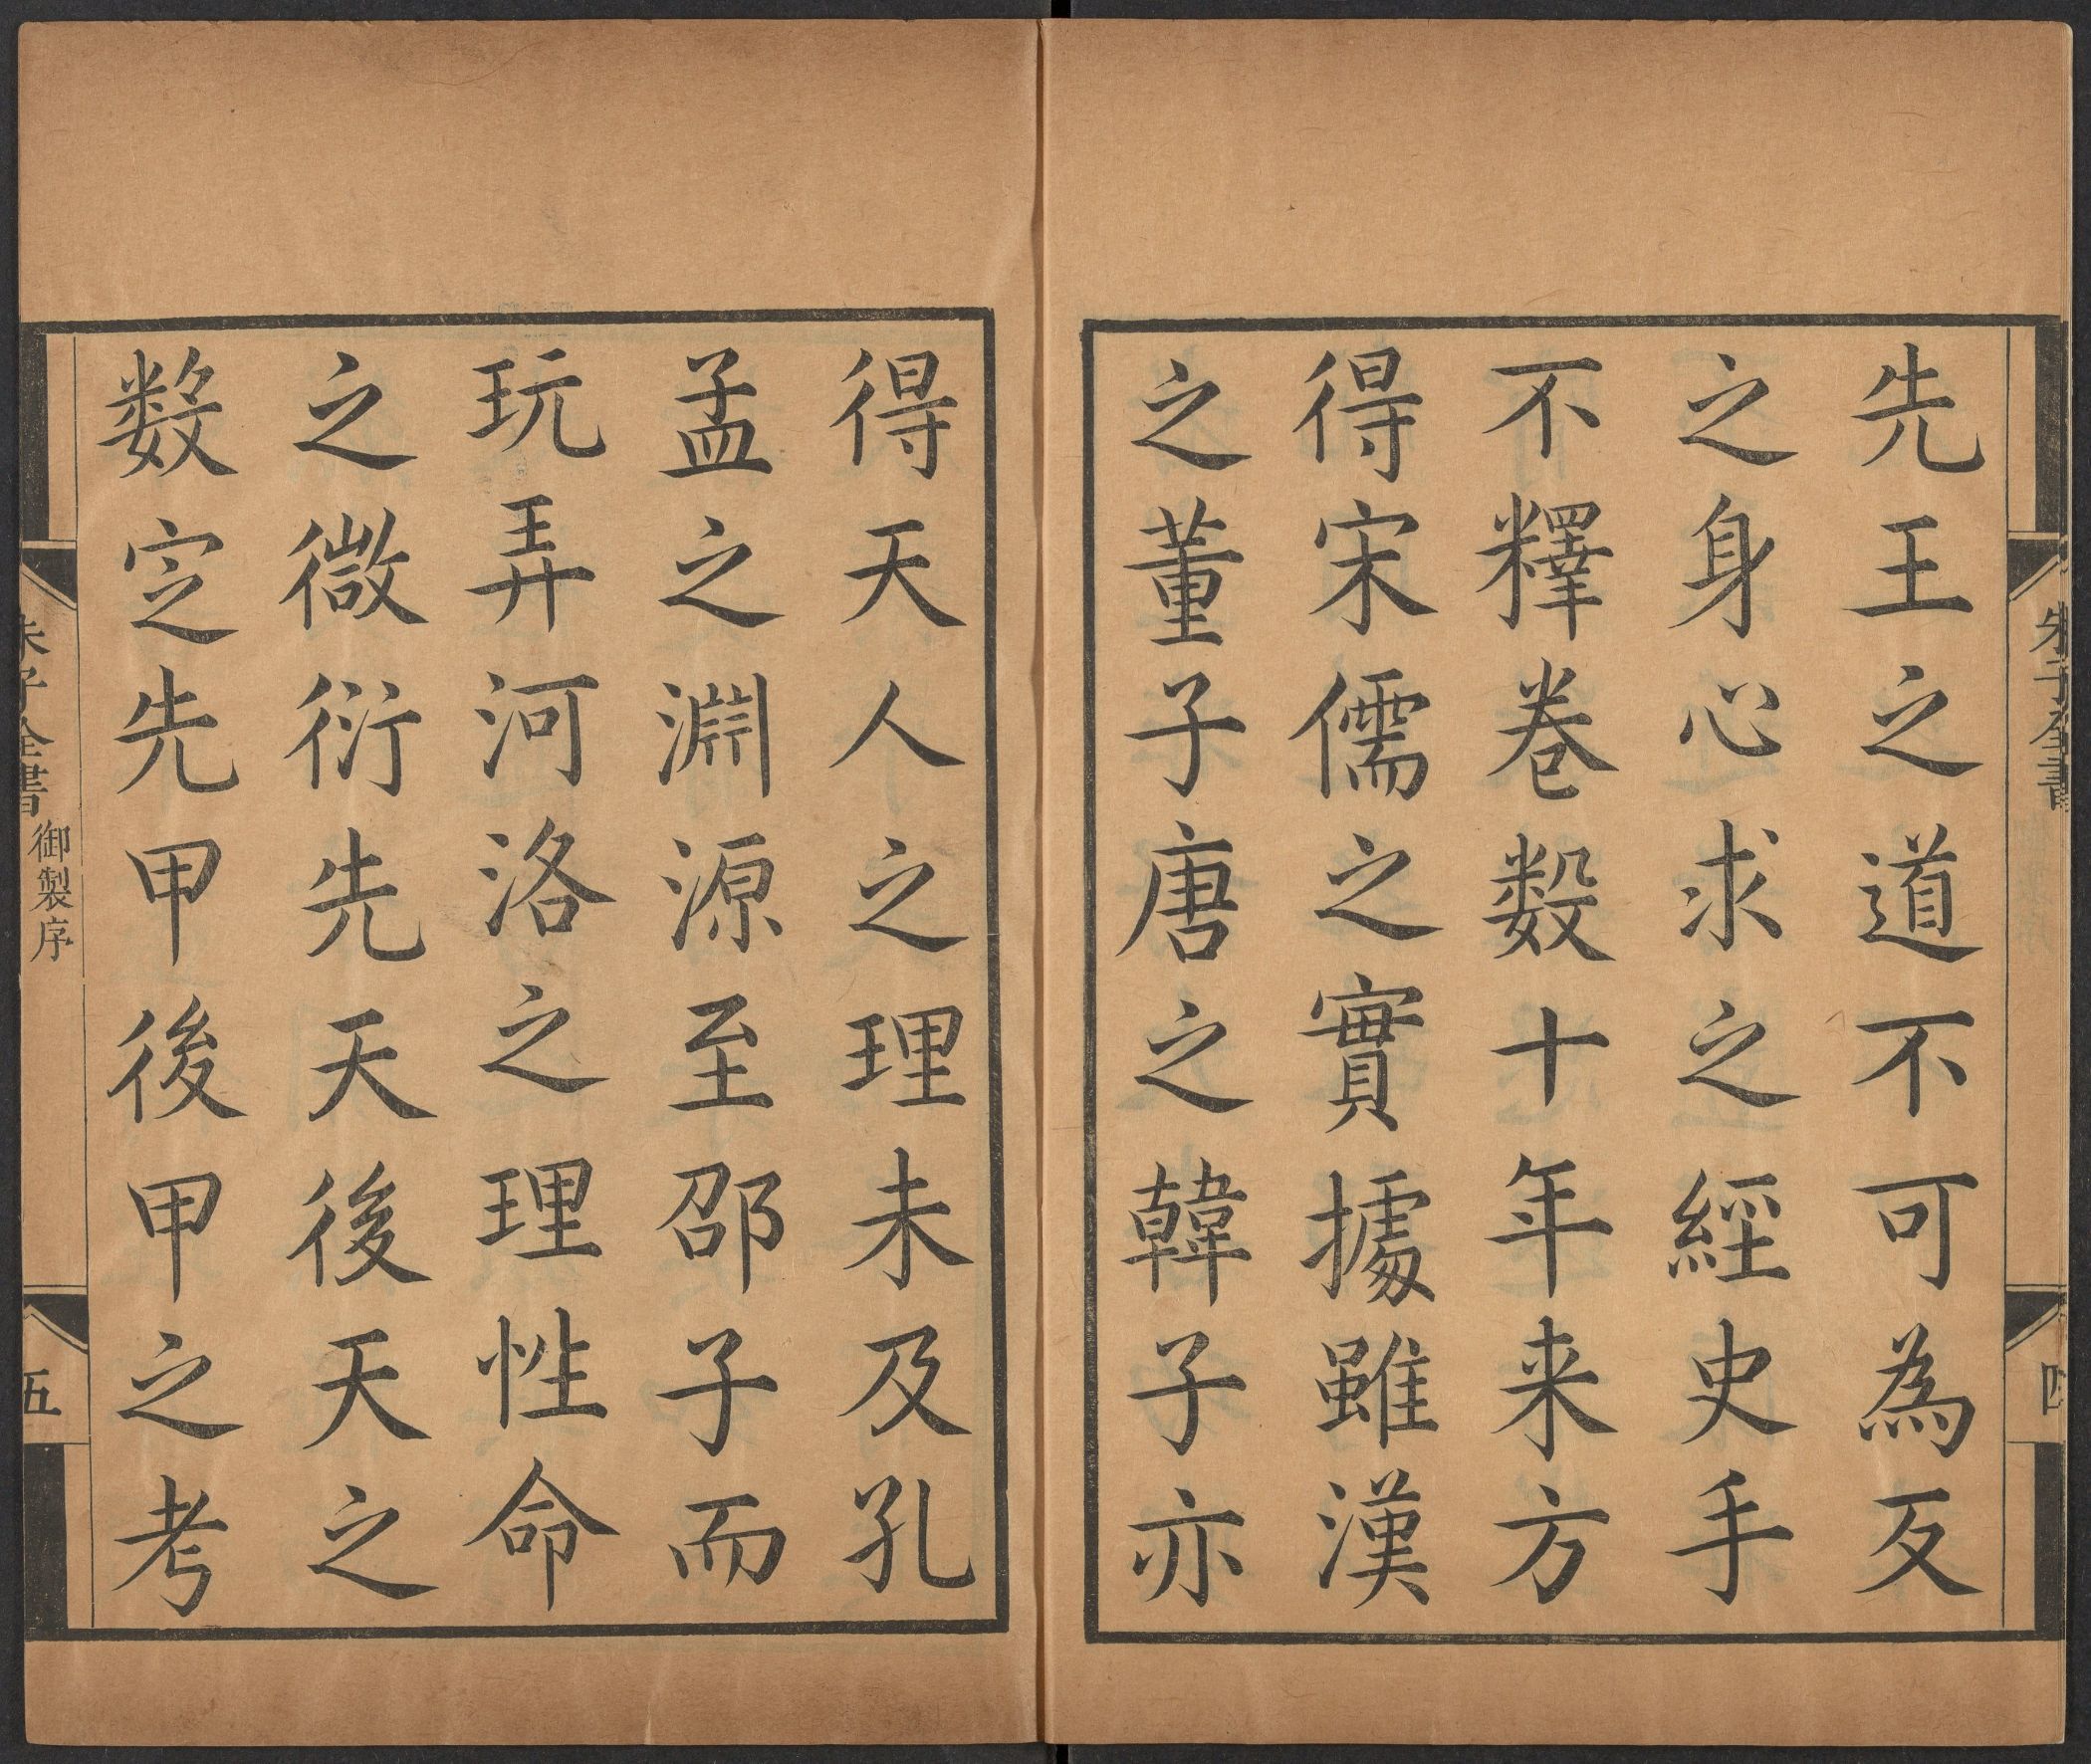 先王之道不可為反
之身心求之經史手
不釋卷数十年来方
得宋儒之實據雖漢
之董子唐之韓子亦
得天人之理未及孔
孟之淵源至邵子而
玩弄河洛之理性命
之微衍先天後天之
数定先甲後甲之考
朱子全書
四
朱子全書
御製序
五